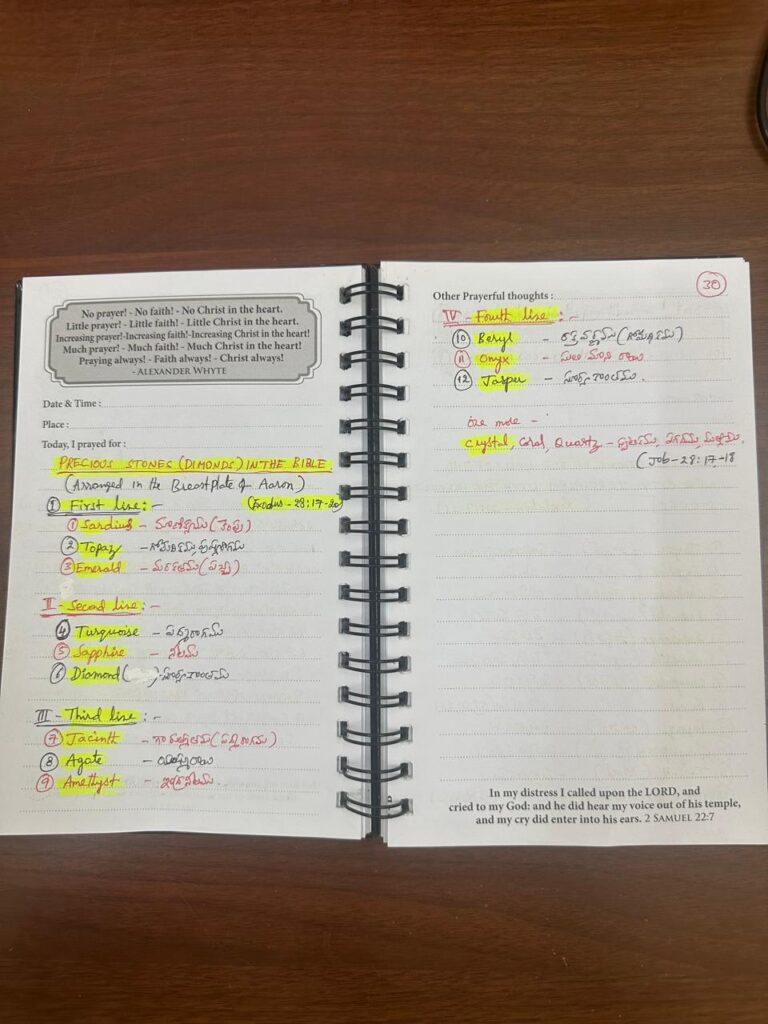 No prayer! - No faith! - No Christ in the heart.
Little prayer! - Little faith! - Little Christ in the heart.
Increasing prayer!-Increasing faith!-Increasing Christ in the heart!
Much prayer! - Much faith! - Much Christ in the heart!
Praying always! - Faith always! - Christ always!
- ALEXANDER WHYTE
Date & Time :
Place :
Today, I prayed for :
PRECIOUS STONES (DIMONDS) IN THE BIBLE
(Arranged in the Breastplate of Aaron)
① First line :- (Exodus - 28:17-20)
① Sardius -
② Topaz -
③ Emerald - మరకతము (పచ్చ)
II - Second line :-
④ Turquoise - పద్మరాగము
⑤ Sapphire - నీలము
⑥ Diamond ( ) సూర్యకాంతము
III - Third line :-
⑦ Jacinth -
⑧ Agate - యష్మురాయి
⑨ Amethyst - ఇంద్రనీలము.
Other Prayerful thoughts :
30
IV - Fourth line :-
⑩ Beryl - రక్తవర్ణపు (గోమేధికము)
⑪ Onyx - సులిమాని రాయి
⑫ Jasper - సూర్యకాంతము.
One more -
Crystal, Coral, Quartz -
(Job - 28:17-18
In my distress I called upon the LORD, and
cried to my God: and he did hear my voice out of his temple,
and my cry did enter into his ears. 2 SAMUEL 22:7